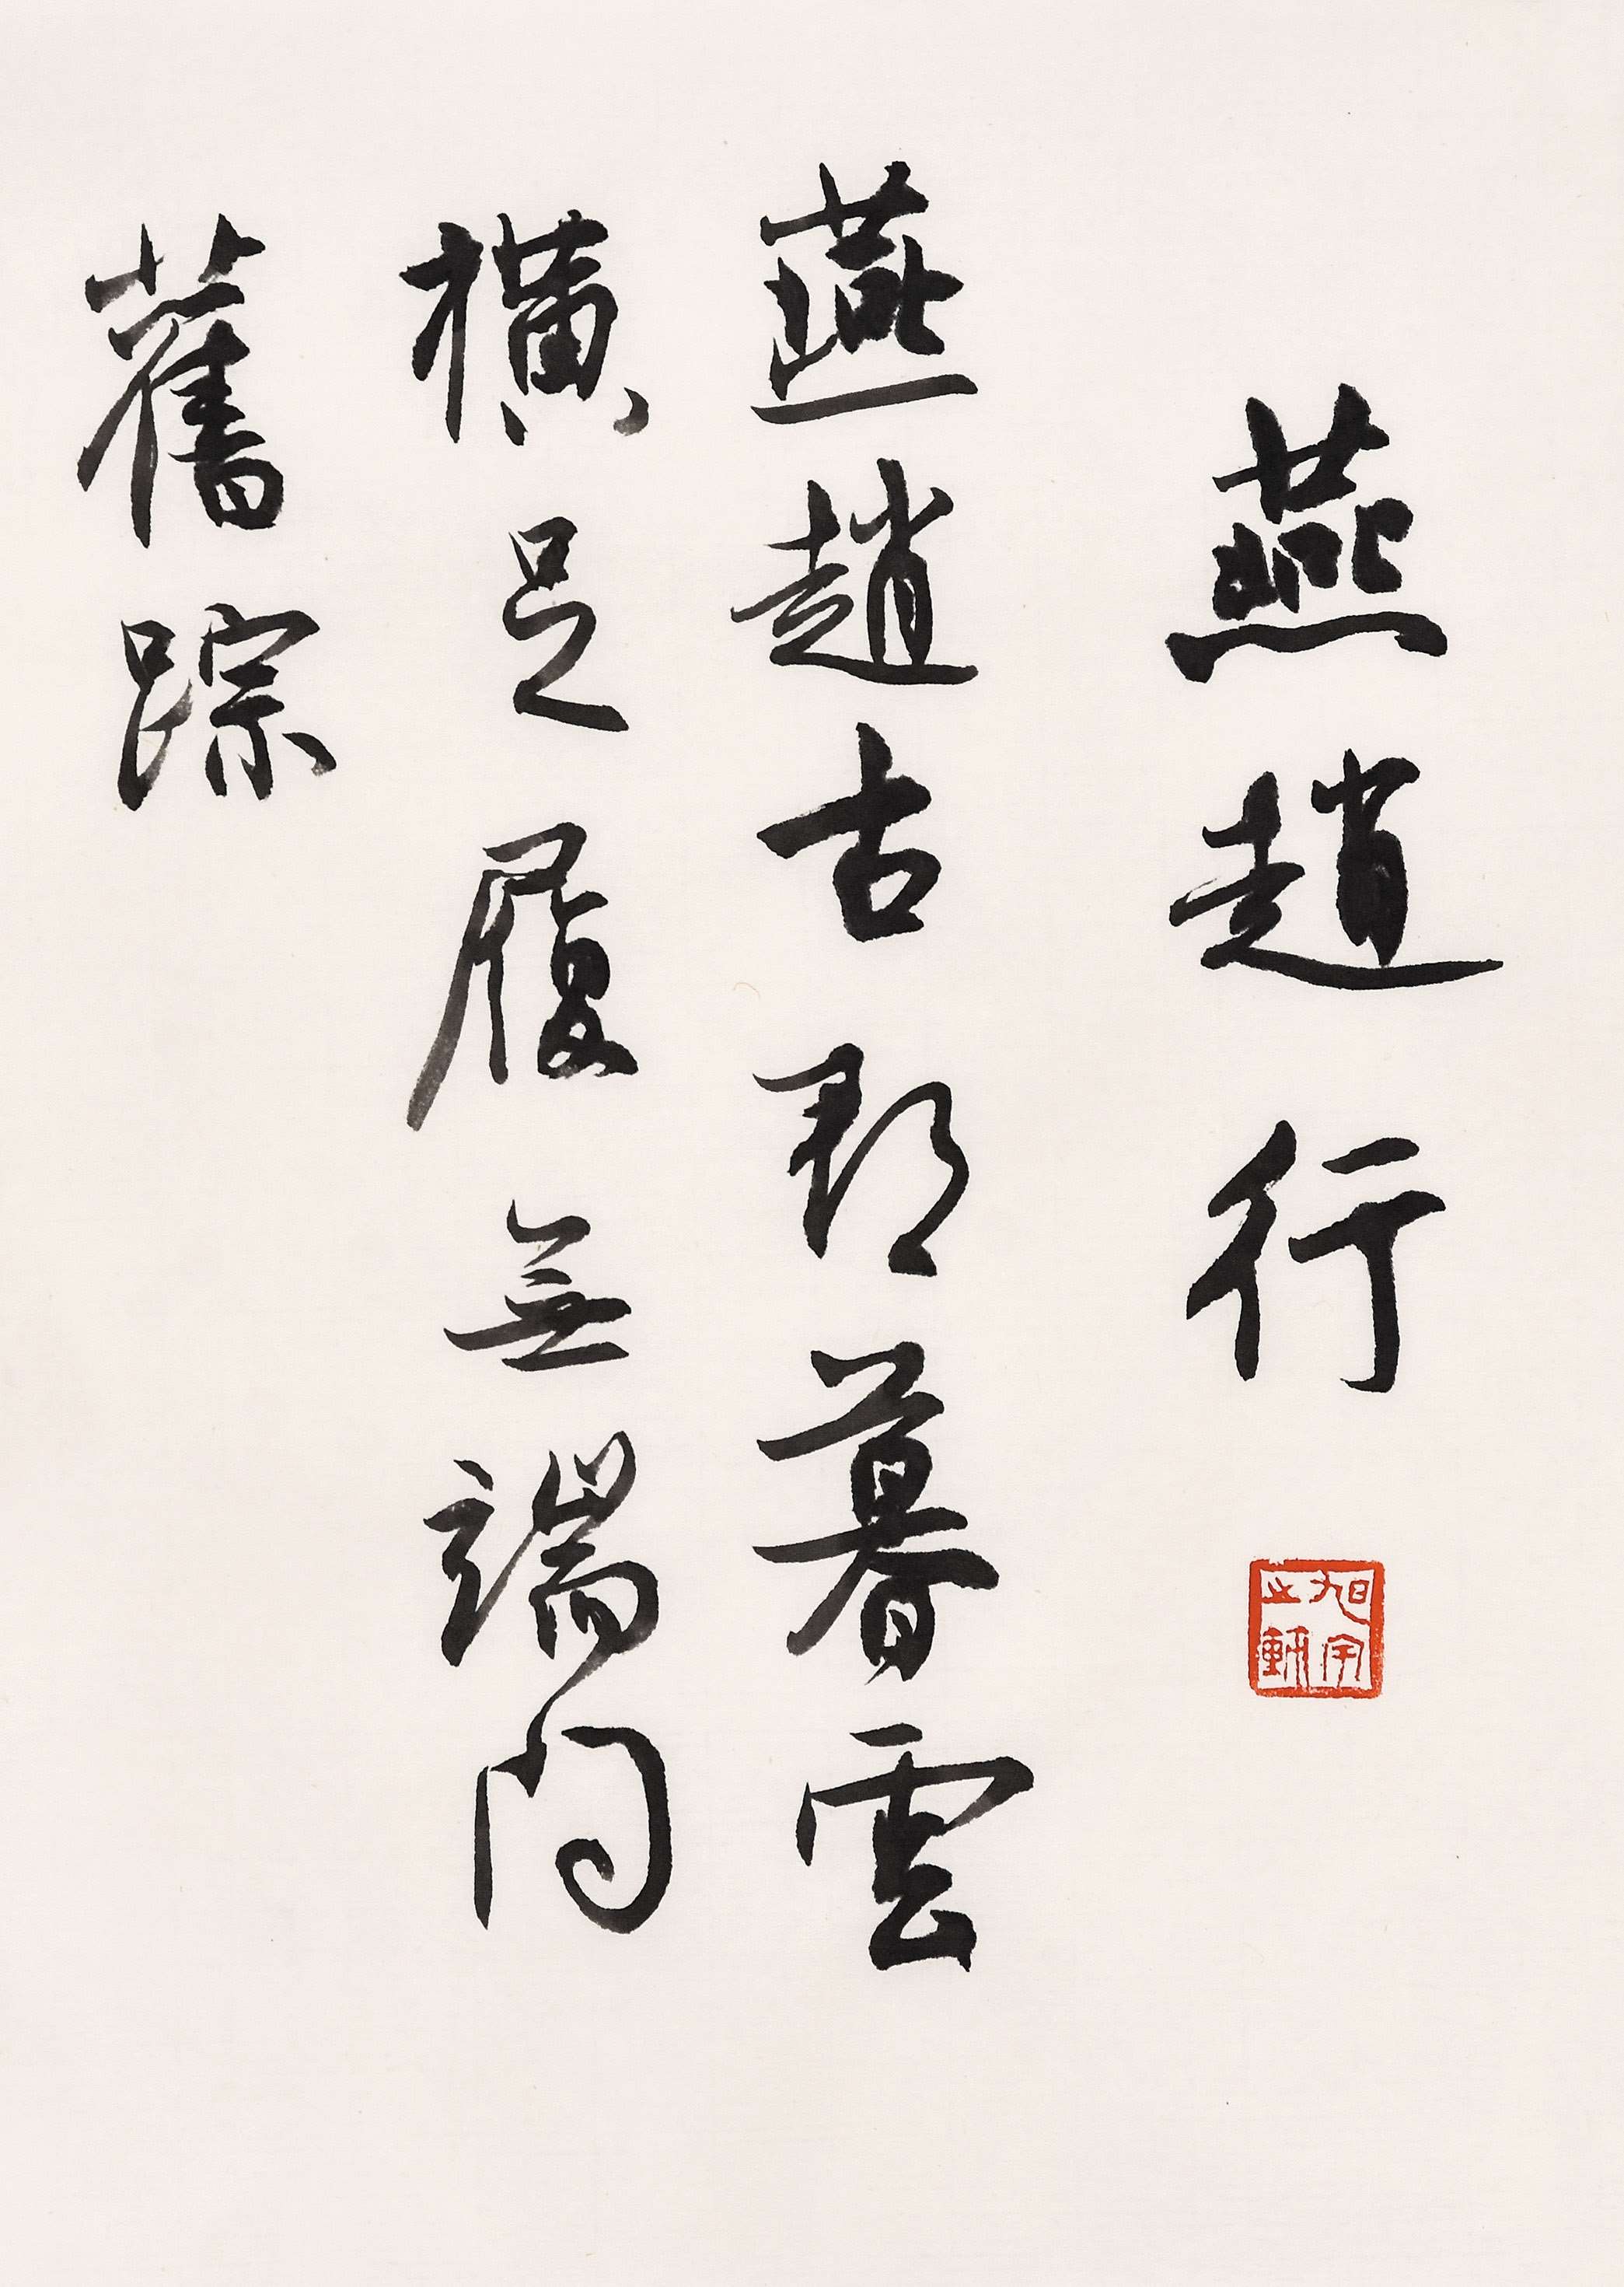 燕趙行
旭宇
之
燕趙古郡暮雲
橫足履無端問
舊踪